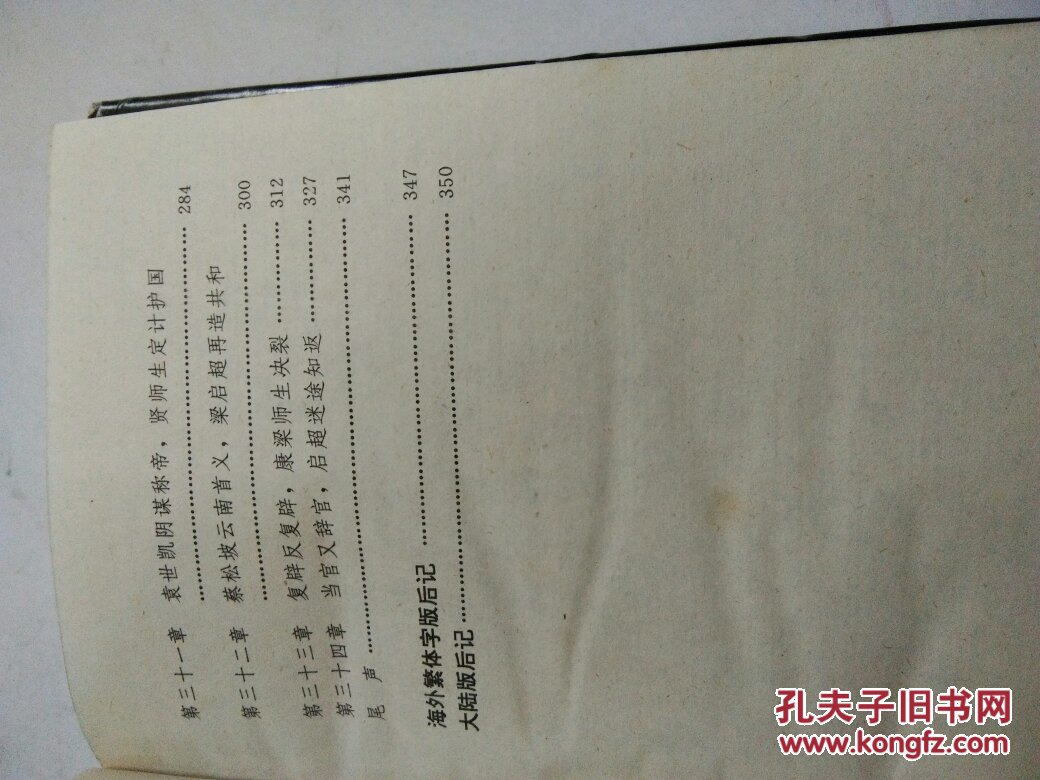 第三十一章 袁世凯阴谋称帝，贤师生定计护国
…………………………………………… 284
第三十二章 蔡松坡云南首义，梁启超再造共和
…………………………………………… 300
第三十三章 复辟反复辟，康梁师生决裂 …………… 312
第三十四章 当官又辞官，启超迷途知返 …………… 327
尾 声 …………………………………………… 341
海外繁体字版后记 …………………………………… 347
大陆版后记 …………………………………………… 350
孔夫子旧书网
www.kongfz.com